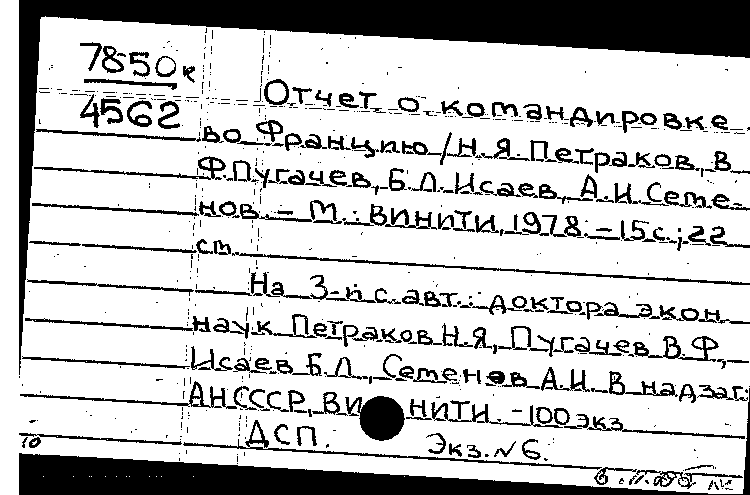 7850к
4562
Отчет о командировке
во Францию/Н.Я.Петраков, В
Ф.Пугачев, Б.Л.Исаев, А.И.Семе-
нов. – М.: ВИНИТИ, 1978. – 15с.; 22
см.
На 3-п с. авт.: доктора экон.
наук Петраков Н.Я., Пугачев В.Ф.,
Исаев Б.Л., Семенов А.И. В надзаг:
АН СССР, ВИ НИТИ. – 100 экз
ДСП. Экз. №6.
10